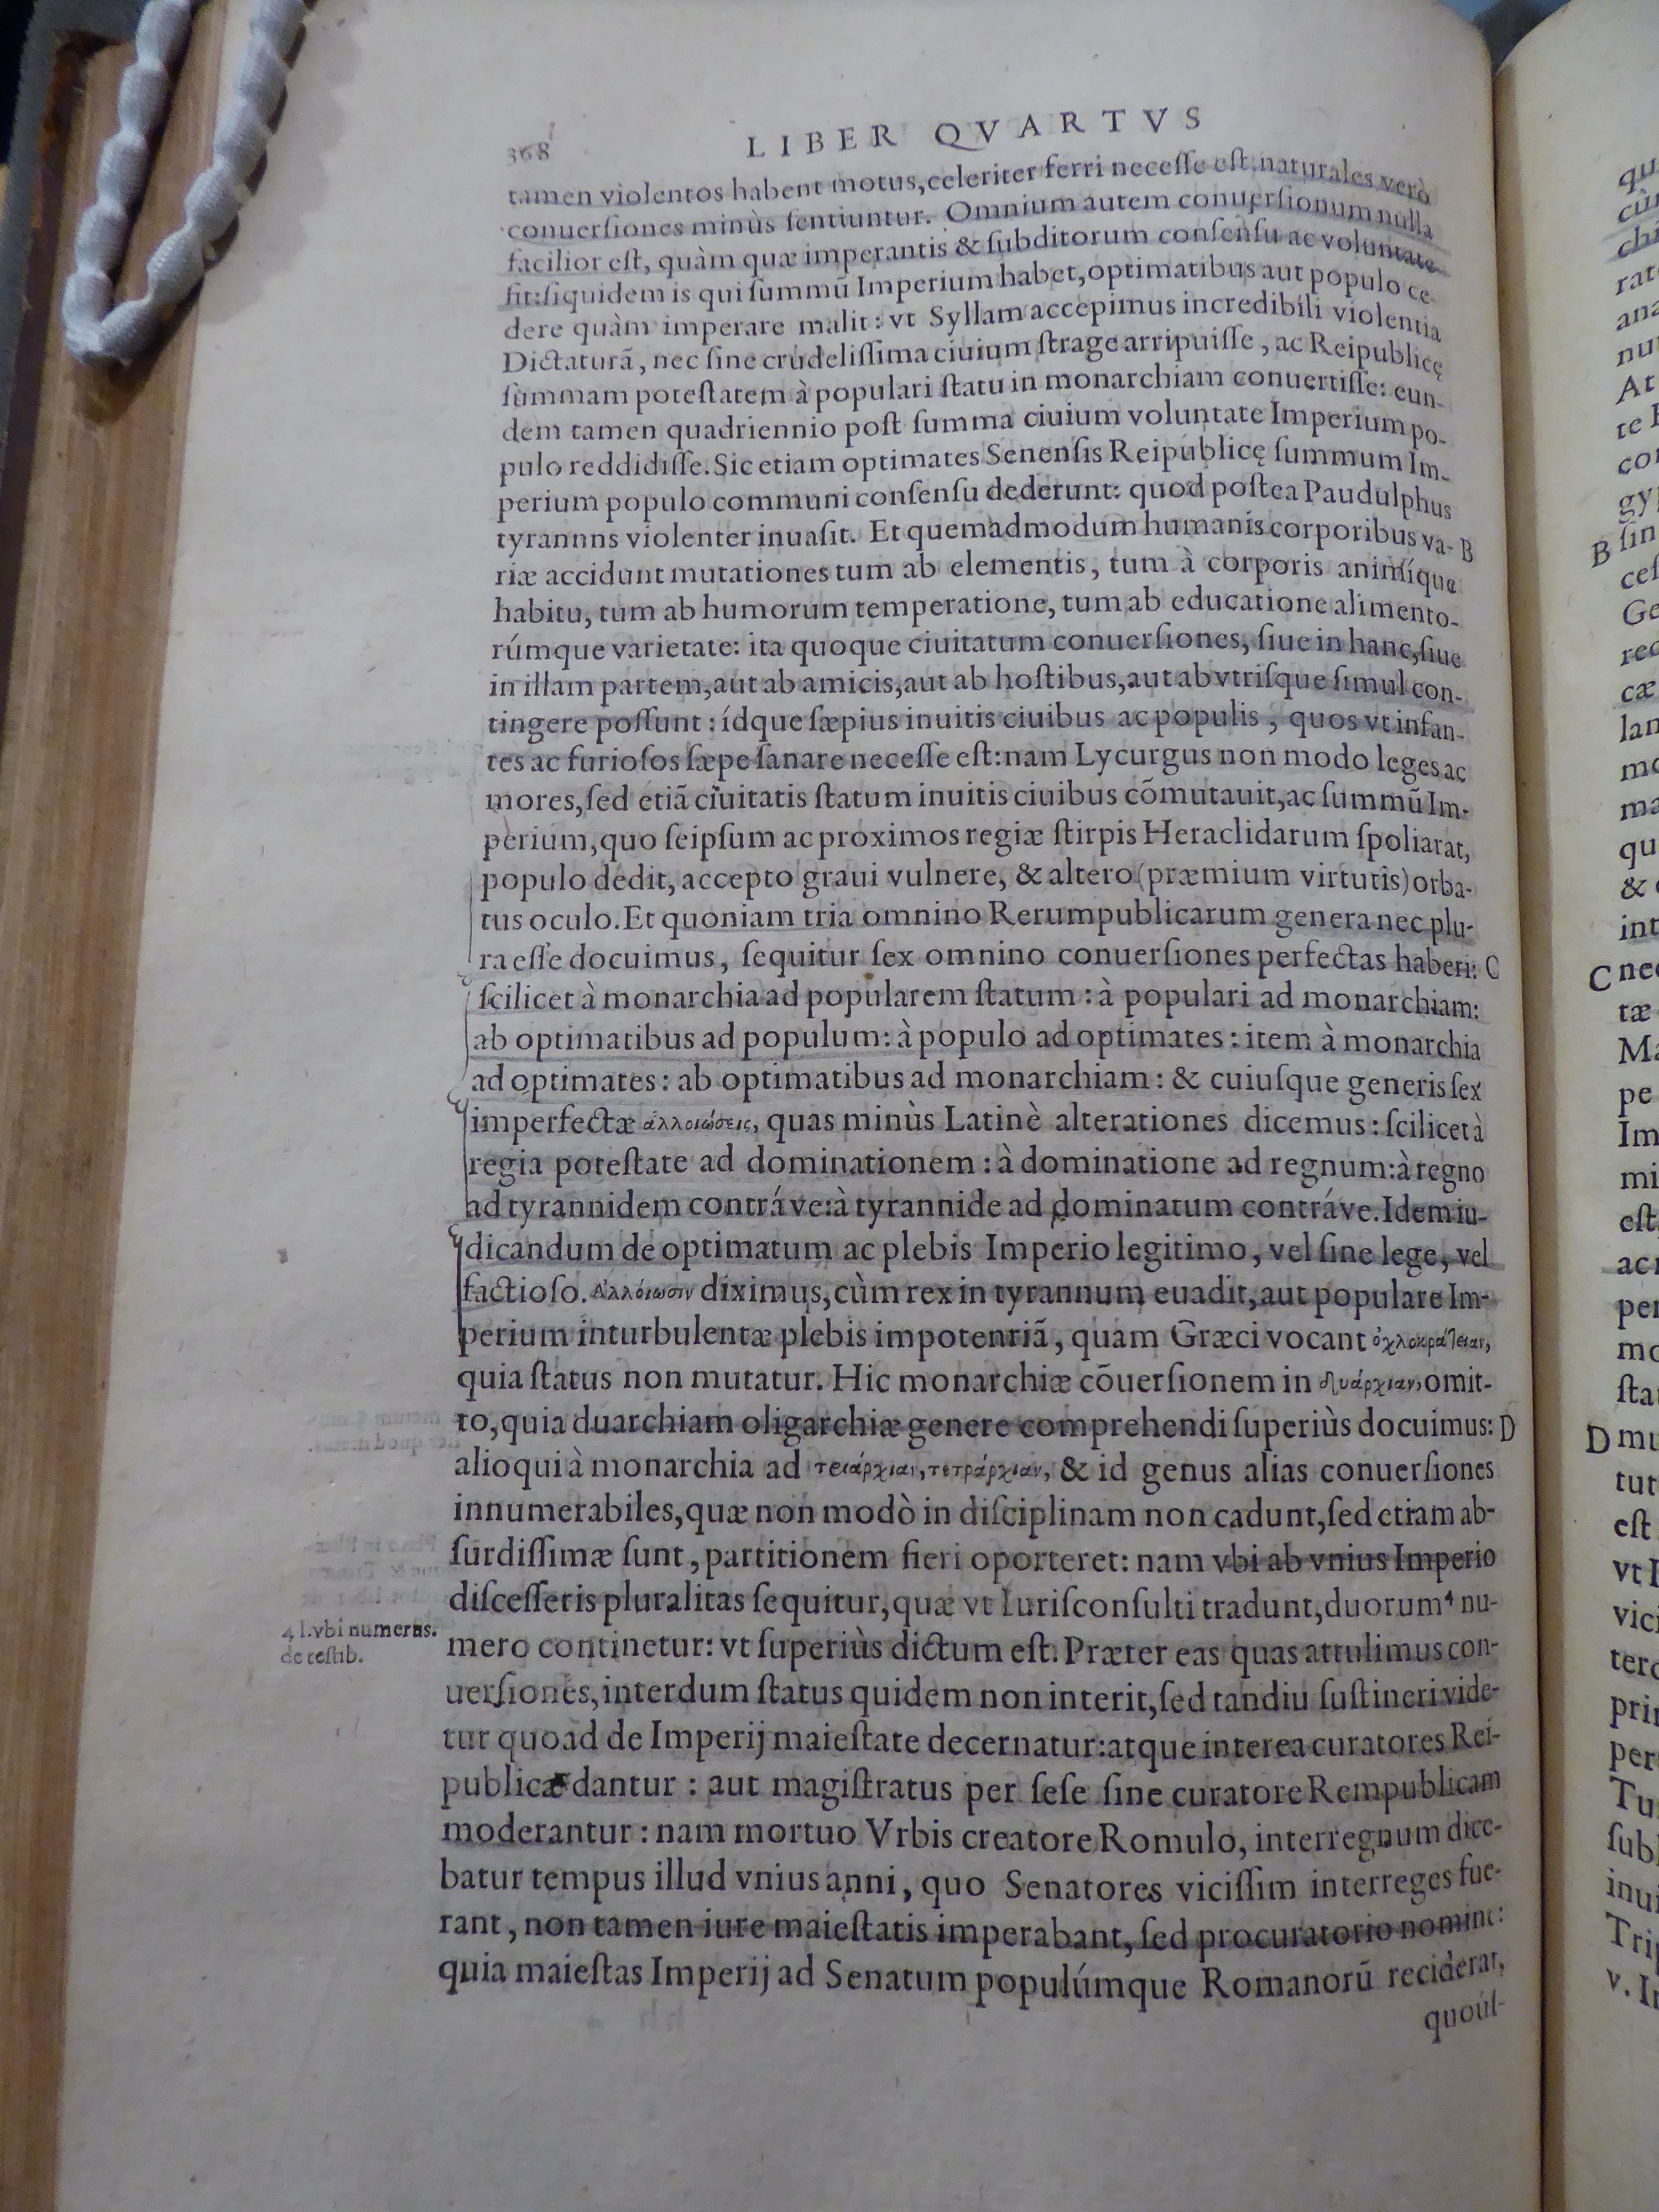 368
LIBER QVARTVS
tamen violentos habent motus, celeriter ferri necesse est: naturales verò
conuersiones minùs sentiuntur. Omnium autem conuersionum nulla
facilior est, quàm quæ imperantis & subditorum consensu ac voluntate
fit: siquidem is qui summũ Imperium habet, optimatibus aut populo ce-
dere quàm imperare malit: vt Syllam accepimus incredibili violentia
Dictaturã, nec sine crudelissima ciuium strage arripuisse, ac Reipublicę
summam potestatem à populari statu in monarchiam conuertisse: eun-
dem tamen quadriennio post summa ciuium voluntate Imperium po-
pulo reddidisse. Sic etiam optimates Senensis Reipublicę summum Im-
perium populo communi consensu dederunt: quod postea Paudulphus
tyrannns violenter inuasit. Et quemadmodum humanis corporibus va- B
riæ accidunt mutationes tum ab elementis, tum à corporis animíque
habitu, tum ab humorum temperatione, tum ab educatione alimento-
rúmque varietate: ita quoque ciuitatum conuersiones, siue in hanc, siue
in illam partem, aut ab amicis, aut ab hostibus, aut ab vtrisque simul con-
tingere possunt: ídque sæpius inuitis ciuibus ac populis, quos vt infan-
tes ac furiosos sæpe sanare necesse est: nam Lycurgus non modo leges ac
mores, sed etiã ciuitatis statum inuitis ciuibus cõmutauit, ac summũ Im-
perium, quo seipsum ac proximos regiæ stirpis Heraclidarum spoliarat,
populo dedit, accepto graui vulnere, & altero (præmium virtutis) orba-
tus oculo. Et quoniam tria omnino Rerumpublicarum genera nec plu-
ra esse docuimus, sequitur sex omnino conuersiones perfectas haberi: C
scilicet à monarchia ad popularem statum: à populari ad monarchiam:
ab optimatibus ad populum: à populo ad optimates: item à monarchia
ad optimates: ab optimatibus ad monarchiam: & cuiusque generis sex
imperfectæ ἀλλοιώσεις, quas minùs Latinè alterationes dicemus: scilicet à
regia potestate ad dominationem: à dominatione ad regnum: à regno
ad tyrannidem contráve: à tyrannide ad dominatum contráve. Idem iu-
dicandum de optimatum ac plebis Imperio legitimo, vel sine lege, vel
factioso. Ἀλλοίωσιν diximus, cùm rex in tyrannum euadit, aut populare Im-
perium in turbulentæ plebis impotentiã, quam Græci vocant ὀχλοκράτειαν,
quia status non mutatur. Hic monarchiæ cõuersionem in δυάρχιαν, omit-
to, quia duarchiam oligarchiæ genere comprehendi superiùs docuimus: D
alioqui à monarchia ad τριάρχιαν, τετράρχιαν, & id genus alias conuersiones
innumerabiles, quæ non modò in disciplinam non cadunt, sed etiam ab-
surdissimæ sunt, partitionem fieri oporteret: nam vbi ab vnius Imperio
discesseris pluralitas sequitur, quæ vt Iurisconsulti tradunt, duorum⁴ nu-
4 l. vbi numerus.
de testib.
mero continetur: vt superiùs dictum est. Præter eas quas attulimus con-
uersiones, interdum status quidem non interit, sed tandiu sustineri vide-
tur quoad de Imperij maiestate decernatur: atque interea curatores Rei-
publicæ dantur: aut magistratus per sese sine curatore Rempublicam
moderantur: nam mortuo Vrbis creatore Romulo, interregnum dice-
batur tempus illud vnius anni, quo Senatores vicissim interreges fue-
rant, non tamen iure maiestatis imperabant, sed procuratorio nomine:
quia maiestas Imperij ad Senatum populúmque Romanorũ reciderat,
quoúl-